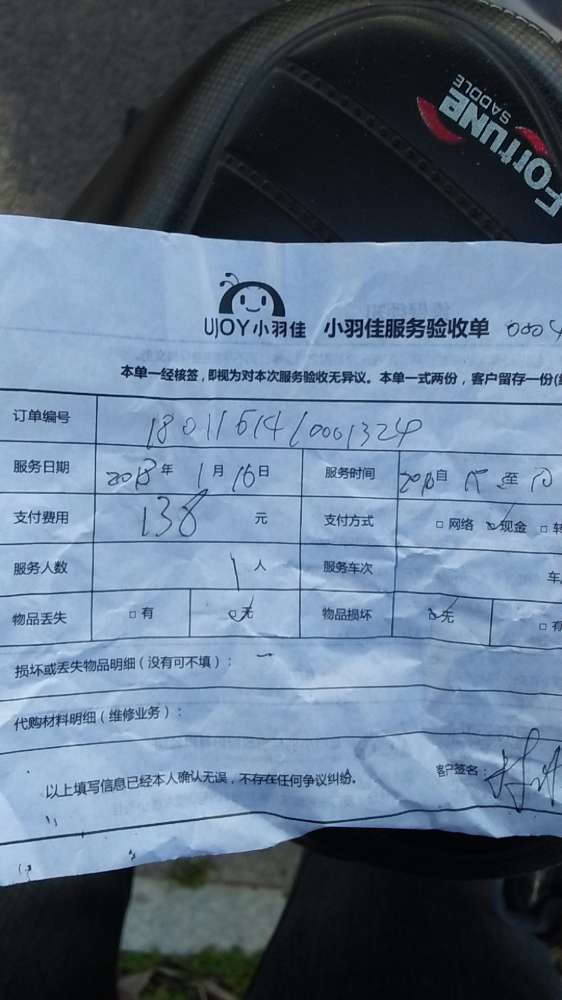 FORTUNE
SADDLE
UJOY小羽佳 小羽佳服务验收单 0004
本单一经核签，即视为对本次服务验收无异议。本单一式两份，客户留存一份
订单编号 1801161410001324
服务日期 2018年 1月 16日 服务时间 自 至
支付费用 138 元 支付方式 □网络 ☑现金 □
服务人数 1人 服务车次 车
物品丢失 □有 ☑无 物品损坏 ☑无 □有
损坏或丢失物品明细（没有可不填）： 一
代购材料明细（维修业务）：
以上填写信息已经本人确认无误，不存在任何争议纠纷。 客户签名：